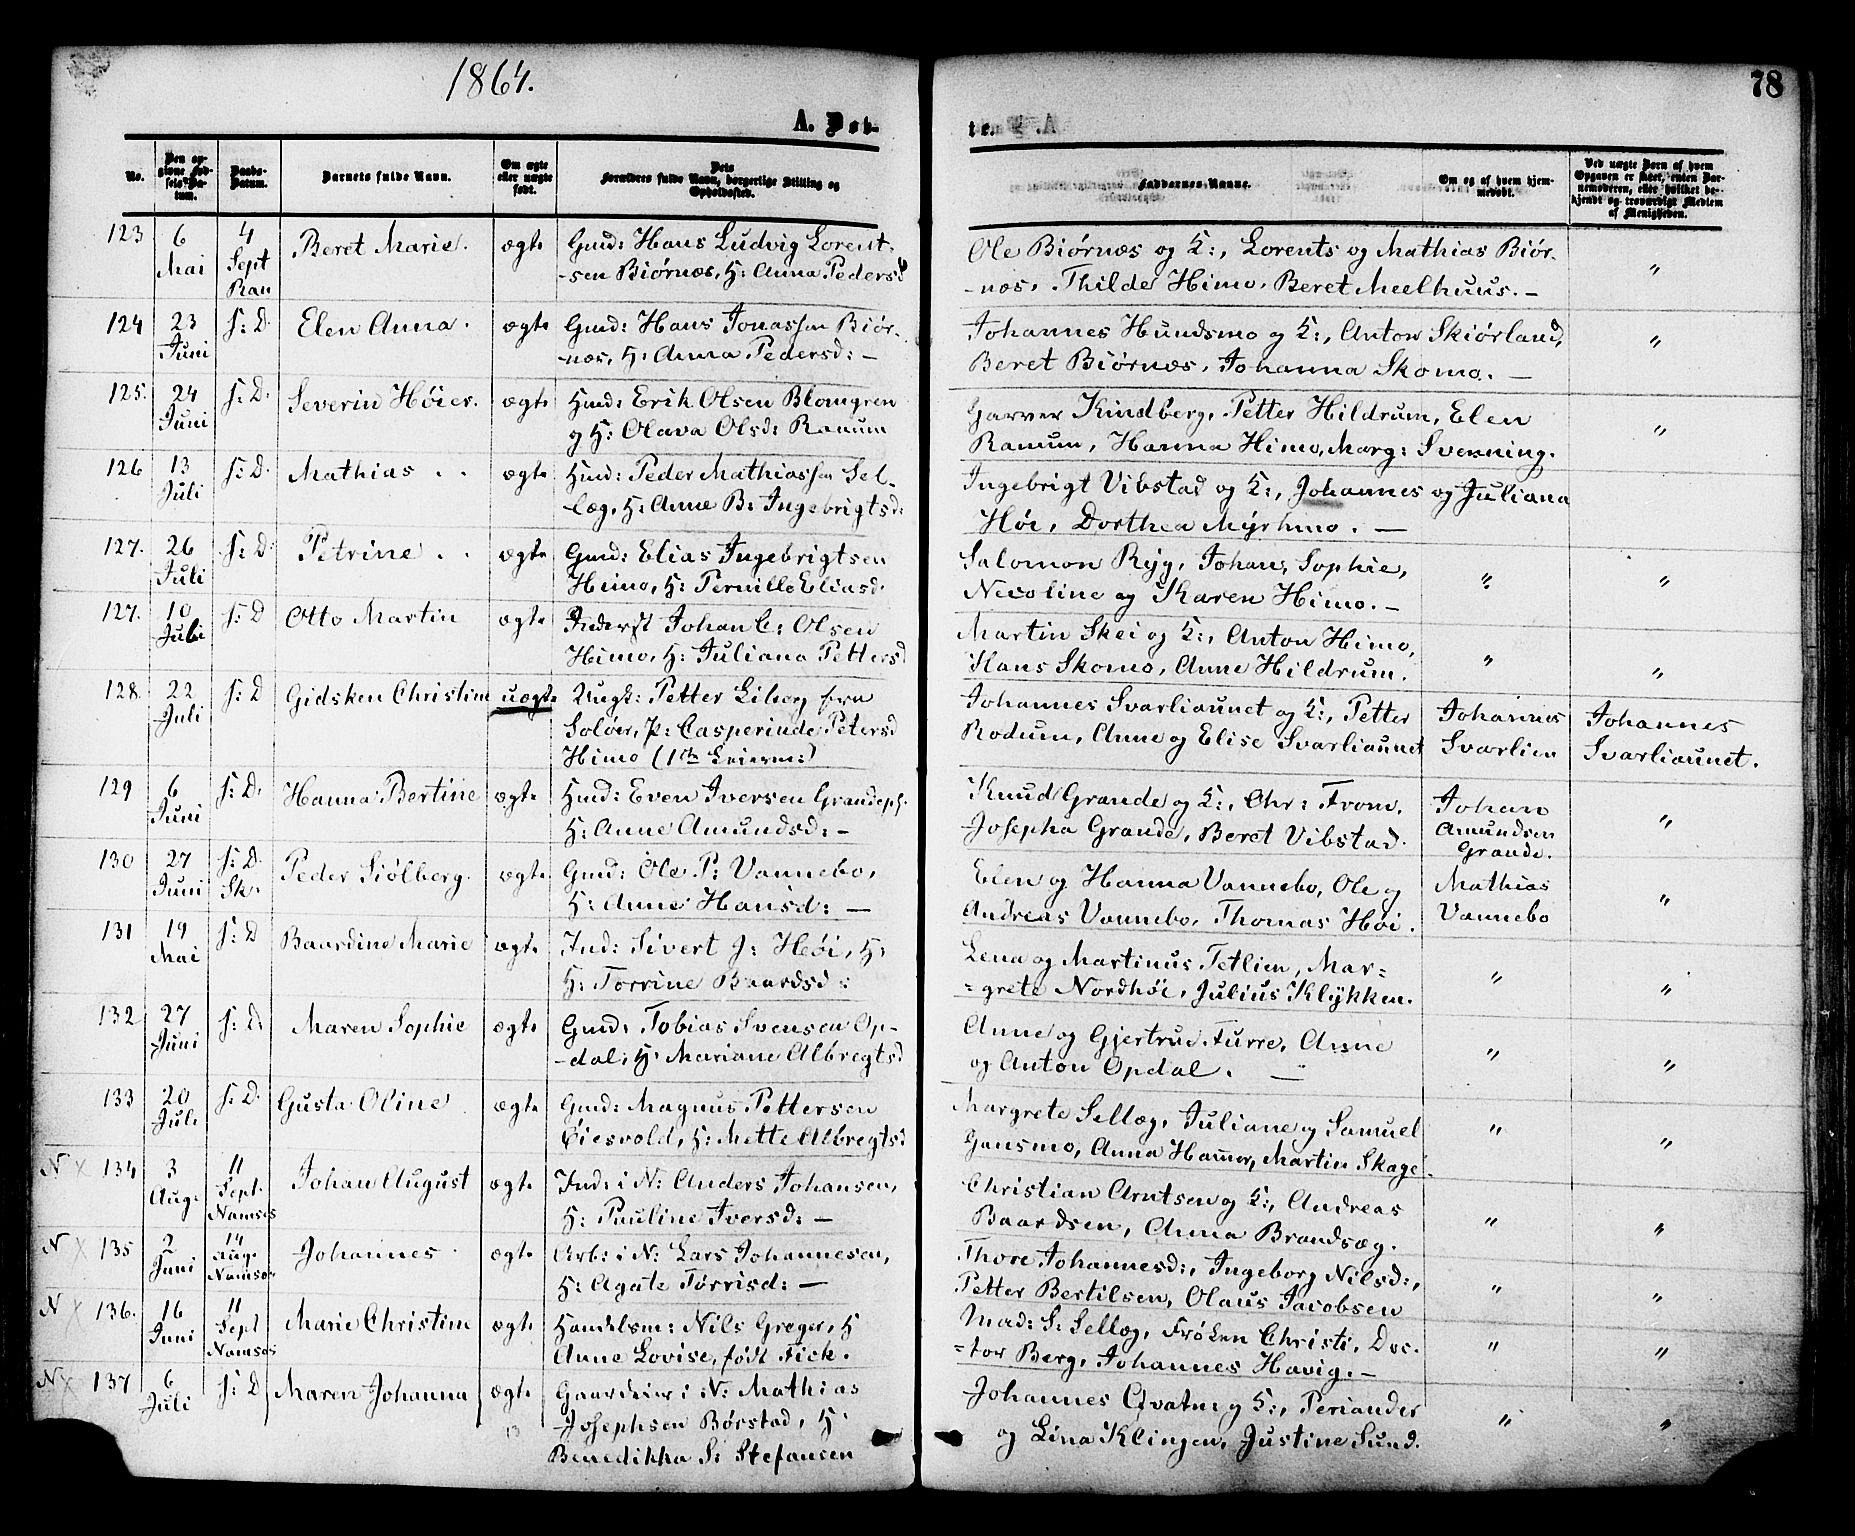 1864.
78
A. Døb-
te.
No.
Den opgivne Fødsels-Datum.
Daabs-Datum.
Barnets fulde Navn.
Om ægte eller uægte født.
Dets Forældres fulde Navn, borgerlige Stilling og Opholdssted.
Faddernes Navne.
Om og af hvem hjemmedøbt.
Ved uægte Børn af hvem Opgaven er skeet, enten Barnemoderen, eller hvilket bekjendt og troværdigt Medlem af Menigheden.
123 6 Mai 4 Sept Ran Beret Marie. ægte Gmd: Hans Ludvig Lorent-
-sen Biørnæs, H: Anna Pedersd
Ole Biørnæs og K:, Lorents og Mathias Biør-
-næs, Thilde Himo, Beret Meelhuus. — "
124 23 Juni S: D. Elen Anna. ægte Gmd: Hans Jonassen Biør-
-næs, H: Anna Pedersd: —
Johannes Hundsmo og K:, Anton Skiørland,
Beret Biørnæs, Johanna Skomo. — "
125. 24 Juni S: D. Severin Høier. ægte Hmd: Erik Olsen Blomgren
og H: Olava Olsd: Ranum
Garver Kindberg, Petter Hildrum, Elen
Ranum, Hanna Himo, Marg: Sverning. "
126 13 Juli S: D. Mathias . . ægte Hmd: Peder Mathiassen Sel-
læg, H: Anne B: Ingebrigtsd:
Ingebrigt Vibstad og K:, Johannes og Juliana
Høi, Dorthea Myrhmo. —
127. 26 Juli S: D. Petrine . . ægte Gmd: Elias Ingebrigtsen
Himo, H: Pernille Eliasd.
Salomon Ryg, Johan, Sophie,
Nicoline og Karen Himo. — " "
127. 10 Juli S: D Otto Martin ægte Inderst Johan C: Olsen
Himo, H: Juliana Pettersd
Martin Skei og K:, Anton Himo,
Hans Skomo, Anne Hildrum. " "
128. 22 Juli S: D Gidsken Christine uægte Ungk: Petter Liberg fra
Soløer, P: Casperinde Petersd
Himo (1ste Leierm:)
Johannes Svarliaunet og K:, Petter
Rodum, Anne og Elise Svarliaunet
Johannes
Svarlien
Johannes
Svarliaunet.
129 6 Juni S: D. Hanna Bertine ægte Hmd: Even Iversen Grandepl.
H: Anne Amundsd: —
Knud Grande og K:, Chr: From,
Josepha Grande, Beret Vibstad.
Johan
Amundsen
Grande. "
130 27 Juni S: D. Sk. Peder Siølberg. ægte Gmd: Ole P: Vannebo,
H: Anne Hansd: —
Elen og Hanna Vannebo, Ole og
Andreas Vannebo, Thomas Høi.
Mathias
Vannebo "
131 19 Mai S: D Baardine Marie ægte Ind: Sivert J: Høi, H:
H: Torrine Baardsd:
Lena og Martinus Tetlien, Mar=
=grete Nordhøi, Julius Klykken. " "
132 27 Juni S: D. Maren Sophie ægte Gmd: Tobias Svensen Op-
-dal, H: Mariane Albregtsd
Anne og Gjertrud Furre, Anne
og Anton Opdal. — " "
133 20 Juli S: D. Gusta Oline ægte Gmd: Magnus Pettersen
Øiesvold, H: Mette Albregtsd
Margrete Sellæg, Juliane og Samuel
Gansmo, Anna Hammer, Martin Skage " "
N X 134 3 Aug. 11 Sept. Namsos Johan August ægte Ind: i N: Anders Johansen,
H: Pauline Iversd: —
Christian Arntsen og K:, Andreas
Baardsen, Anna Brandsæg. " "
N X 135 2 Juni 14 Aug. Namsos Johannes ægte Arb: i N: Lars Johannesen,
H: Agate Tørrisd: —
Thore Johannesd:, Ingeborg Nilsd:,
Petter Bertilsen, Olaus Jacobsen " "
N X 136. 16 Juni 11 Sept Namsos Marie Christine ægte Handelsm: Nils Greger, H
Anne Lovise, født Fick.
Mad: S: Sellæg, Frøken Christi, Doc-
=tor Berg, Johannes Havig. — " "
N X 137 6 Juli S: D Maren Johanna ægte Gaardeier i N: Mathias
Josephsen Børstad, H:
Benedikka S: Stefansen
Johannes Qvatn og K:, Periander
og Lina Klingen, Justine Sund. " "